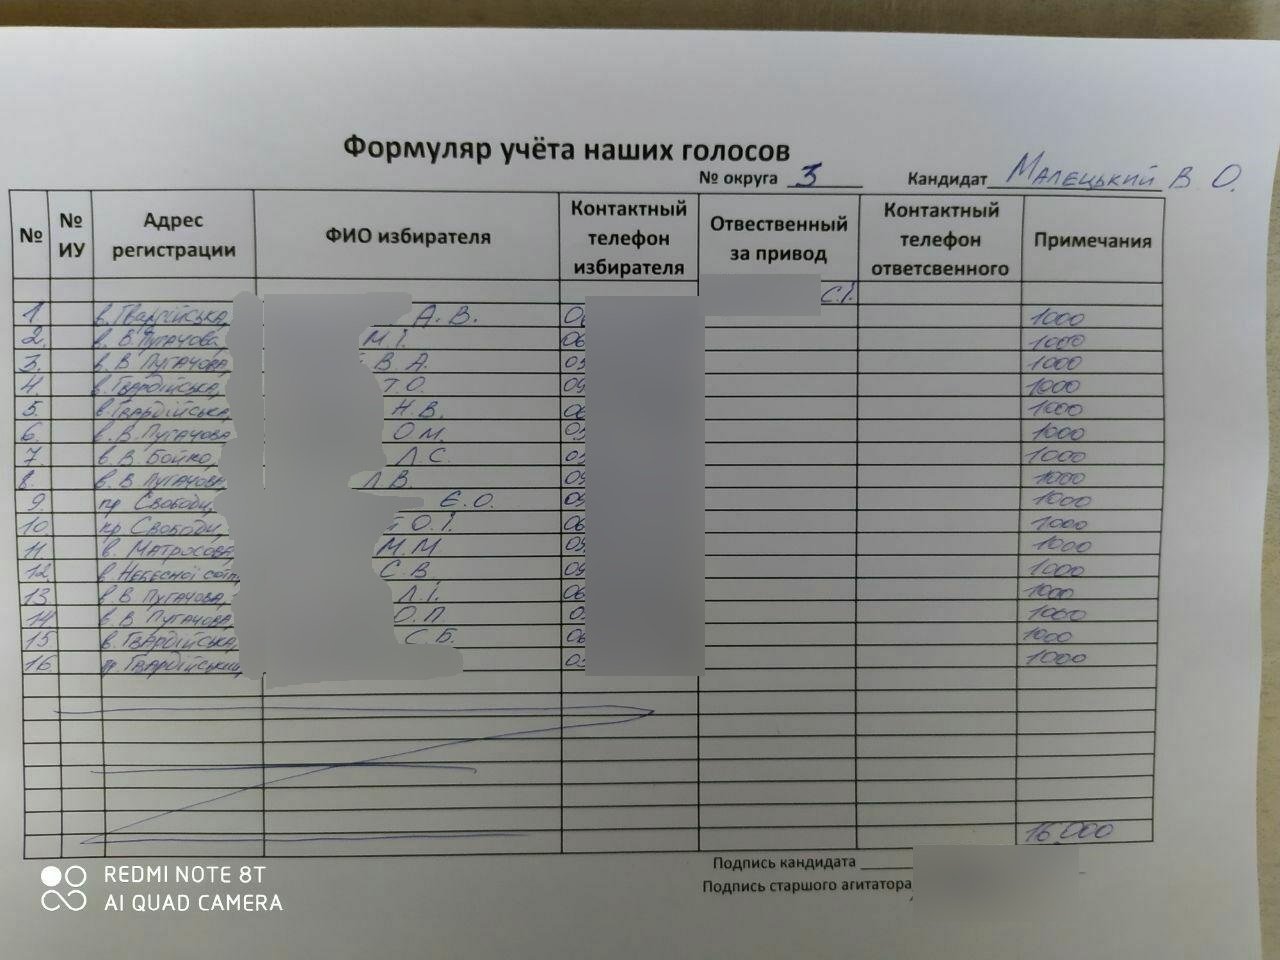 Формуляр учёта наших голосов
№ округа 3 Кандидат Малецький В О.
№ № ИУ Адрес регистрации ФИО избирателя Контактный телефон избирателя Отвественный за привод Контактный телефон ответсвенного Примечания
С.І.
1. в. Гвардійська, А. В. 06 1000
2. в. В. Пугачова, М І. 06 1000
3. в. В Пугачова, В А. 05 1000
4. в. Гвардійська, Т.О. 09 1000
5. в. Гвардійська, Н. В. 06 1000
6. в. В. Пугачова О М. 05 1000
7. в. В Бойко, Л. С. 05 1000
8. в. В Пугачова Л. В. 09 1000
9. пр Свободи, Є. О. 09 1000
10. пр Свободи, О. І. 06 1000
11. в. Матросова, М. М 09 1000
12. в. Небесної сотн С. В 09 1000
13 в. В. Пугачова, Л. І. 06 1000
14. в. В Пугачова, О. П. 05 1000
15 в. Гвардійська, С. Б. 06 1000
16. Гвардійський 05 1000
16 000
Подпись кандидата
Подпись старшого агитатора
REDMI NOTE 8T
AI QUAD CAMERA